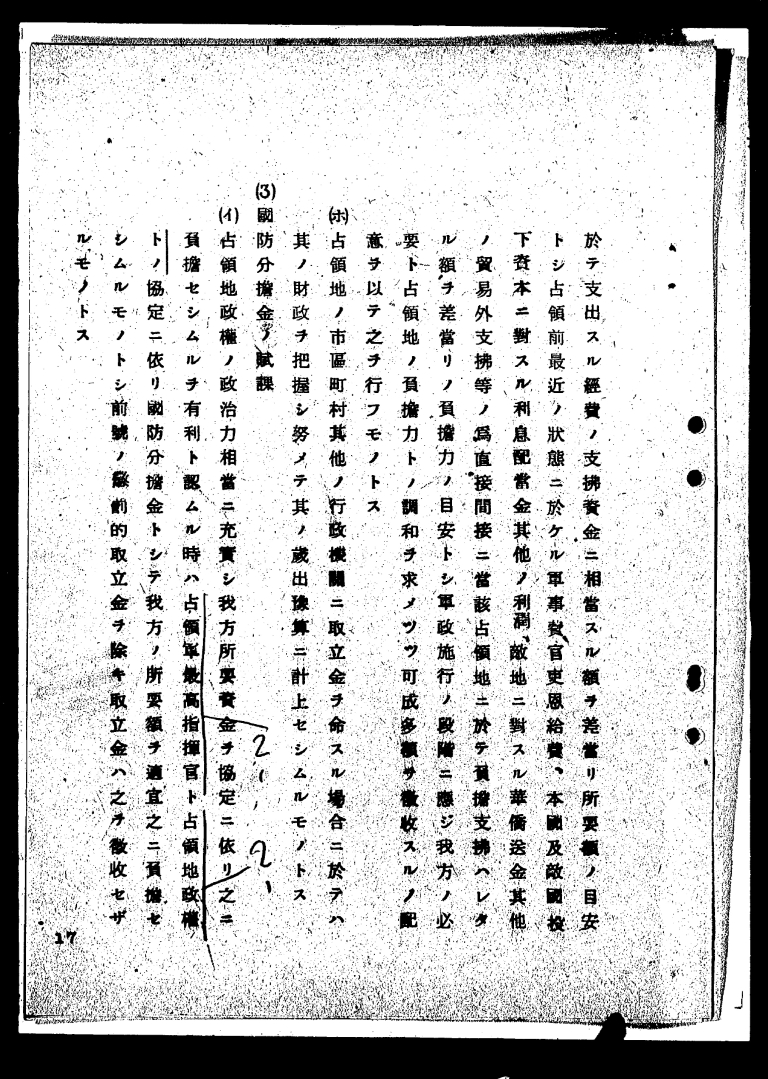 於テ支出スル經費ノ支拂資金ニ相當スル額ヲ差當リ所要額ノ目安
トシ占領前最近ノ狀態ニ於ケル軍事費官吏恩給費、本國及敵國投
下資本ニ對スル利息配當金其他ノ利潤、敵地ニ對スル華僑送金其他
ノ貿易外支拂等ノ爲直接間接ニ當該占領地ニ於テ負擔支拂ハレタ
ル額ヲ差當リノ負擔力ノ目安トシ軍政施行ノ段階ニ應ジ我方ノ必
要ト占領地ノ負擔力トノ調和ヲ求メツツ可成多額ヲ徵收スルノ配
意ヲ以テ之ヲ行フモノトス
(ホ)占領地ノ市區町村其他ノ行政機關ニ取立金ヲ命スル場合ニ於テハ
其ノ財政ヲ把握シ努メテ其ノ歲出豫算ニ計上セシムルモノトス
(3)國防分擔金ノ賦課
(イ)占領地政權ノ政治力相當ニ充實シ我方所要資金ヲ協定ニ依リ之ニ
負擔セシムルヲ有利ト認ムル時ハ占領軍最高指揮官ト占領地政權
トノ協定ニ依リ國防分擔金トシテ我方ノ所要額ヲ適宜之ニ負擔セ
シムルモノトシ前號ノ懲罰的取立金ヲ除キ取立金ハ之ヲ徵收セザ
ルモノトス
2
2
17